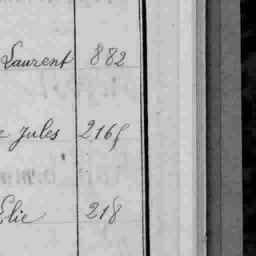 Laurent 882
Jules 2165
Elie 218